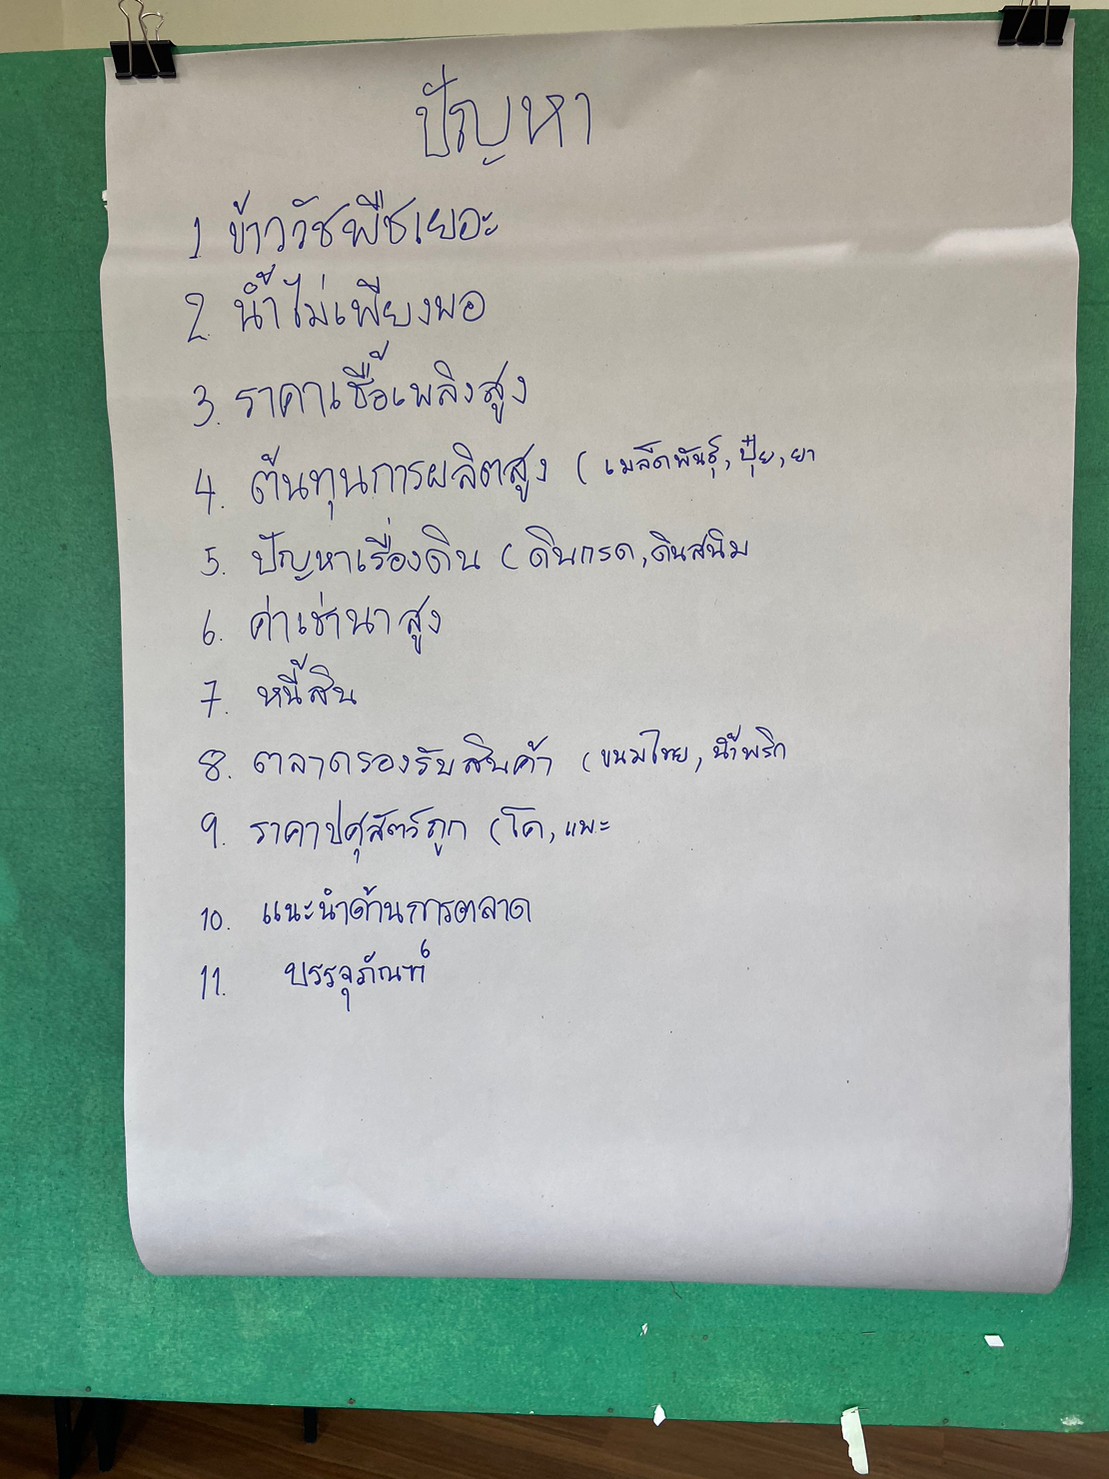 ปัญหา
1 ข้าววัชพืชเยอะ
2. น้ำไม่เพียงพอ
3. ราคาเชื้อเพลิงสูง
4. ต้นทุนการผลิตสูง ( เมล็ดพันธุ์, ปุ๋ย, ยา
5. ปัญหาเรื่องดิน ( ดินกรด, ดินสนิม
6. ค่าเช่านาสูง
7. หนี้สิน
8. ตลาดรองรับสินค้า ( ขนมไทย, น้ำพริก
9. ราคาปศุสัตว์ถูก (โค, แพะ
10. แนะนำด้านการตลาด
11. บรรจุภัณฑ์